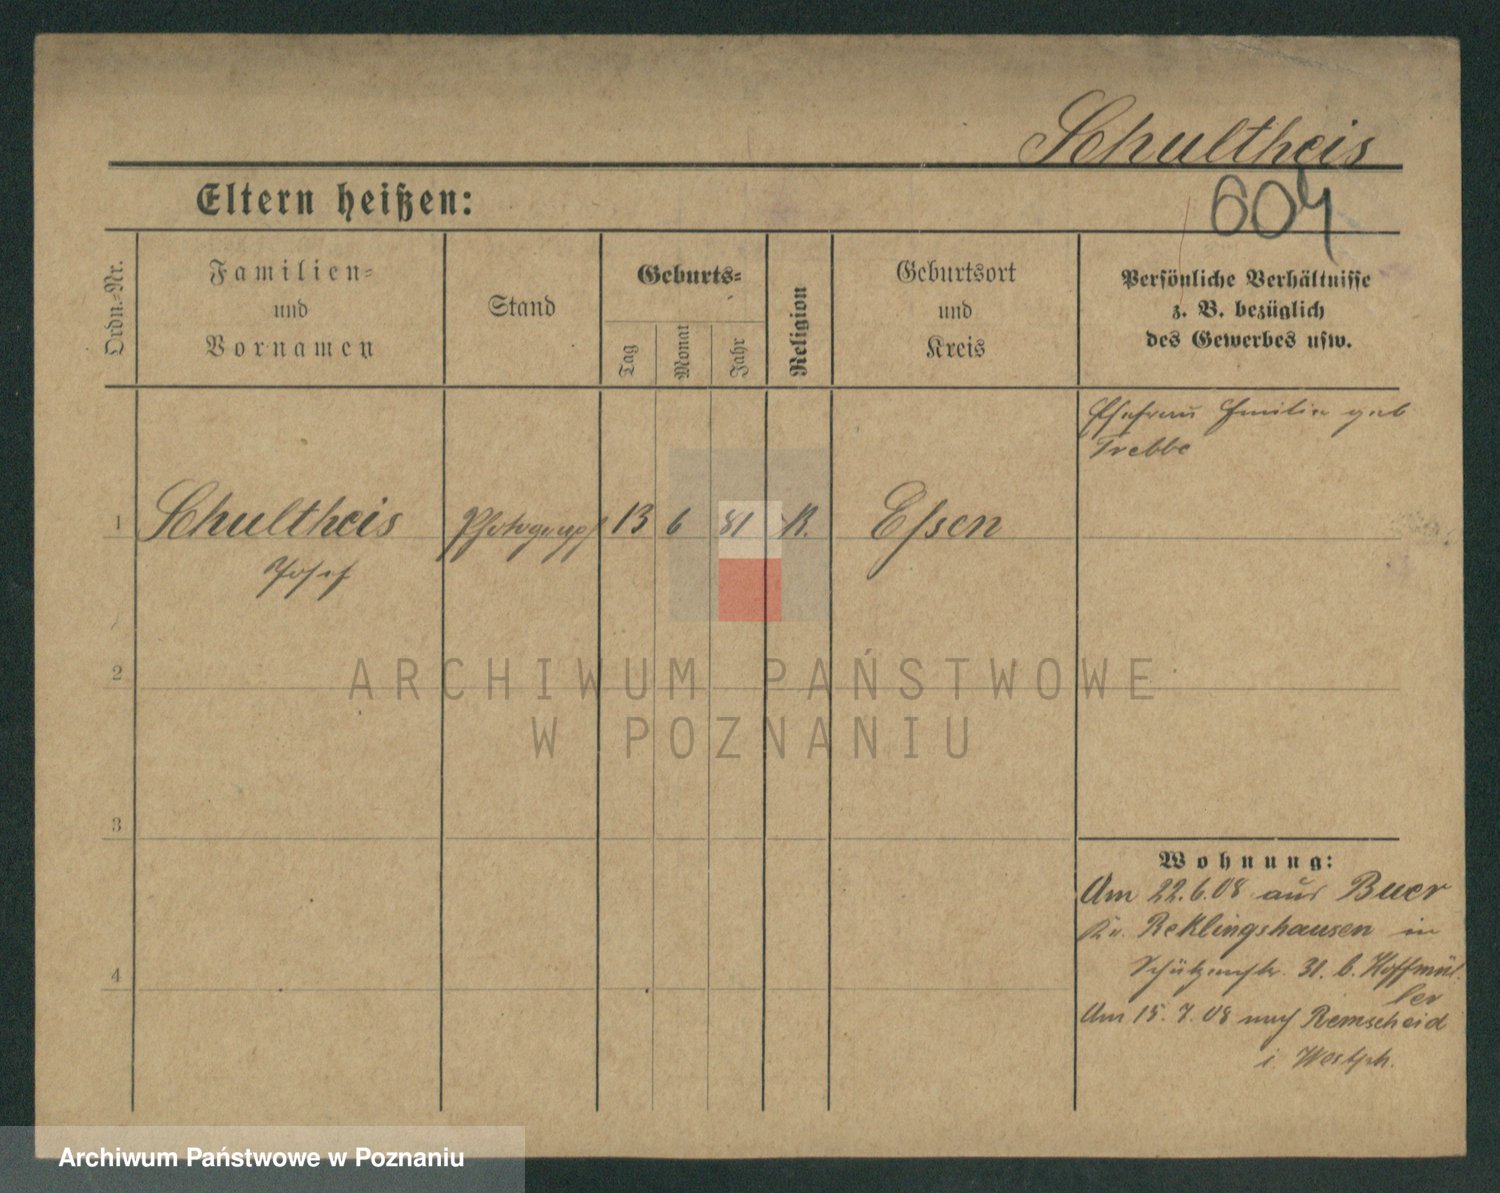 Schultheis
604
Eltern heißen:
Ordn.-Nr.
Familien-
und
Vornamen
Stand
Geburts-
Tag
Monat
Jahr
Religion
Geburtsort
und
Kreis
Persönliche Verhältnisse
z. B. bezüglich
des Gewerbes usw.
Ehefrau Emilie geb
Trebbe
1 Schultheis Photograph 13 6 81 K. Essen
Josef
2
3
4
Wohnung:
Am 22.6.08 aus Buer
Kr. Reklingshausen in
Schützenstr. 31. b. Hoffmül-
ler
Am 15. 7. 08 nach Remscheid
i. Westph.
ARCHIWUM PAŃSTWOWE
W POZNANIU
Archiwum Państwowe w Poznaniu